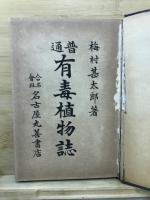 梅村甚太郎著
普通
有毒植物誌
合名會社
名古屋丸善書店